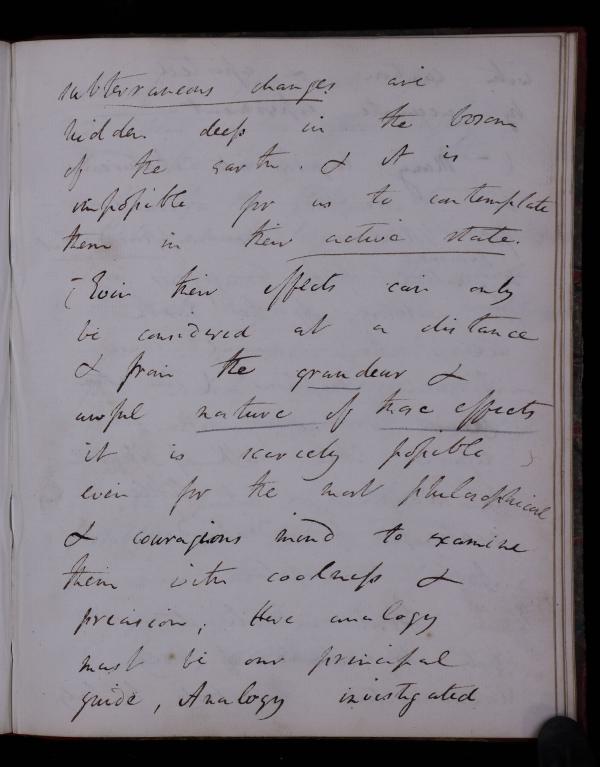 subterraneous changes are
hidden deep in the bosom
of the earth. & it is
impossible for us to contemplate
them in their active state.
– Even their effects can only
be considered at a distance
& from the grandeur &
awful nature of these effects
it is scarcely possible
even for the most philosophical
& couragious mind to examine
them with coolness &
precision; Here analogy
must be our principal
guide, Analogy investigated